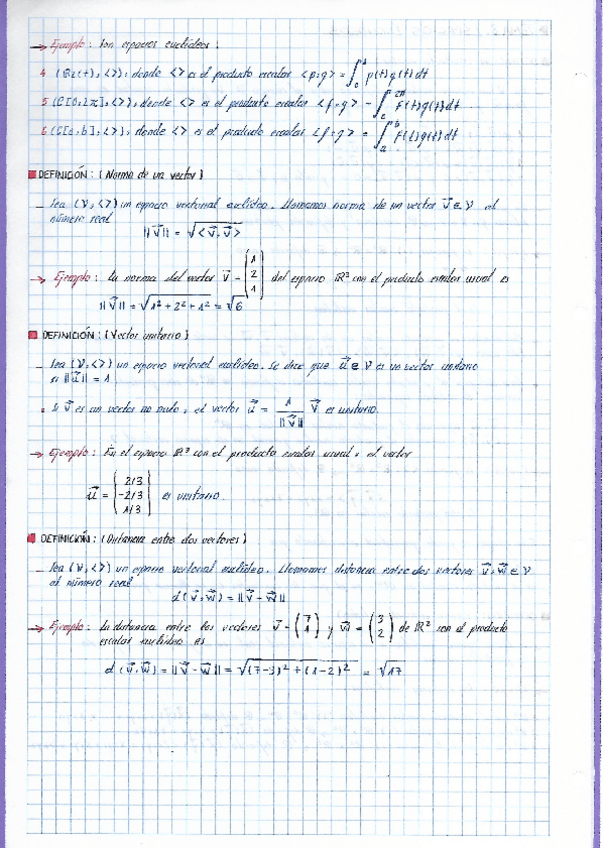 → Ejemplo: Son espacios euclídeos:
4 (P₂(t), <>), donde <> es el producto escalar <p,g> = ∫₀¹ p(t)g(t)dt
5 (C[0,2π], <>), donde <> es el producto escalar <f,g> = ∫ f(t)g(t)dt
6 (C[a,b], <>), donde <> es el producto escalar <f,g> = ∫ₐᵇ f(t)g(t)dt
DEFINICIÓN: (Norma de un vector)
_ Sea (V,<>) un espacio vectorial euclídeo. Llamamos norma de un vector v⃗ ∈ V al
número real
||v⃗|| = √<v⃗,v⃗>
→ Ejemplo: La norma del vector v⃗ = (1 2 1) del espacio ℝ³ con el producto escalar usual es
||v⃗|| = √1²+2²+1² = √6
DEFINICIÓN: (Vector unitario)
_ Sea (V,<>) un espacio vectorial euclídeo. Se dice que u⃗ ∈ V es un vector unitario
si ||u⃗|| = 1
• Si v⃗ es un vector no nulo, el vector u⃗ = 1/||v⃗|| v⃗ es unitario.
→ Ejemplo: En el espacio ℝ³ con el producto escalar usual, el vector
u⃗ = (2/3 -2/3 1/3) es unitario.
DEFINICIÓN: (Distancia entre dos vectores)
_ Sea (V,<>) un espacio vectorial euclídeo. Llamamos distancia entre dos vectores v⃗,w⃗ ∈ V
al número real
d(v⃗,w⃗) = ||v⃗-w⃗||
→ Ejemplo: La distancia entre los vectores v⃗ = (7 1) y w⃗ = (3 2) de ℝ² con el producto
escalar euclídeo es
d(v⃗,w⃗) = ||v⃗-w⃗|| = √(7-3)²+(1-2)² = √17